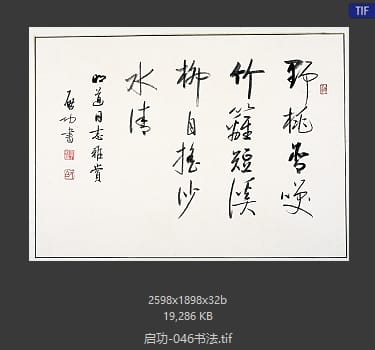 TIF
野桃含咲
竹籬短溪
柳自搖沙
水清
明道同志雅賞
启功書
2598x1898x32b
19,286 KB
启功-046书法.tif